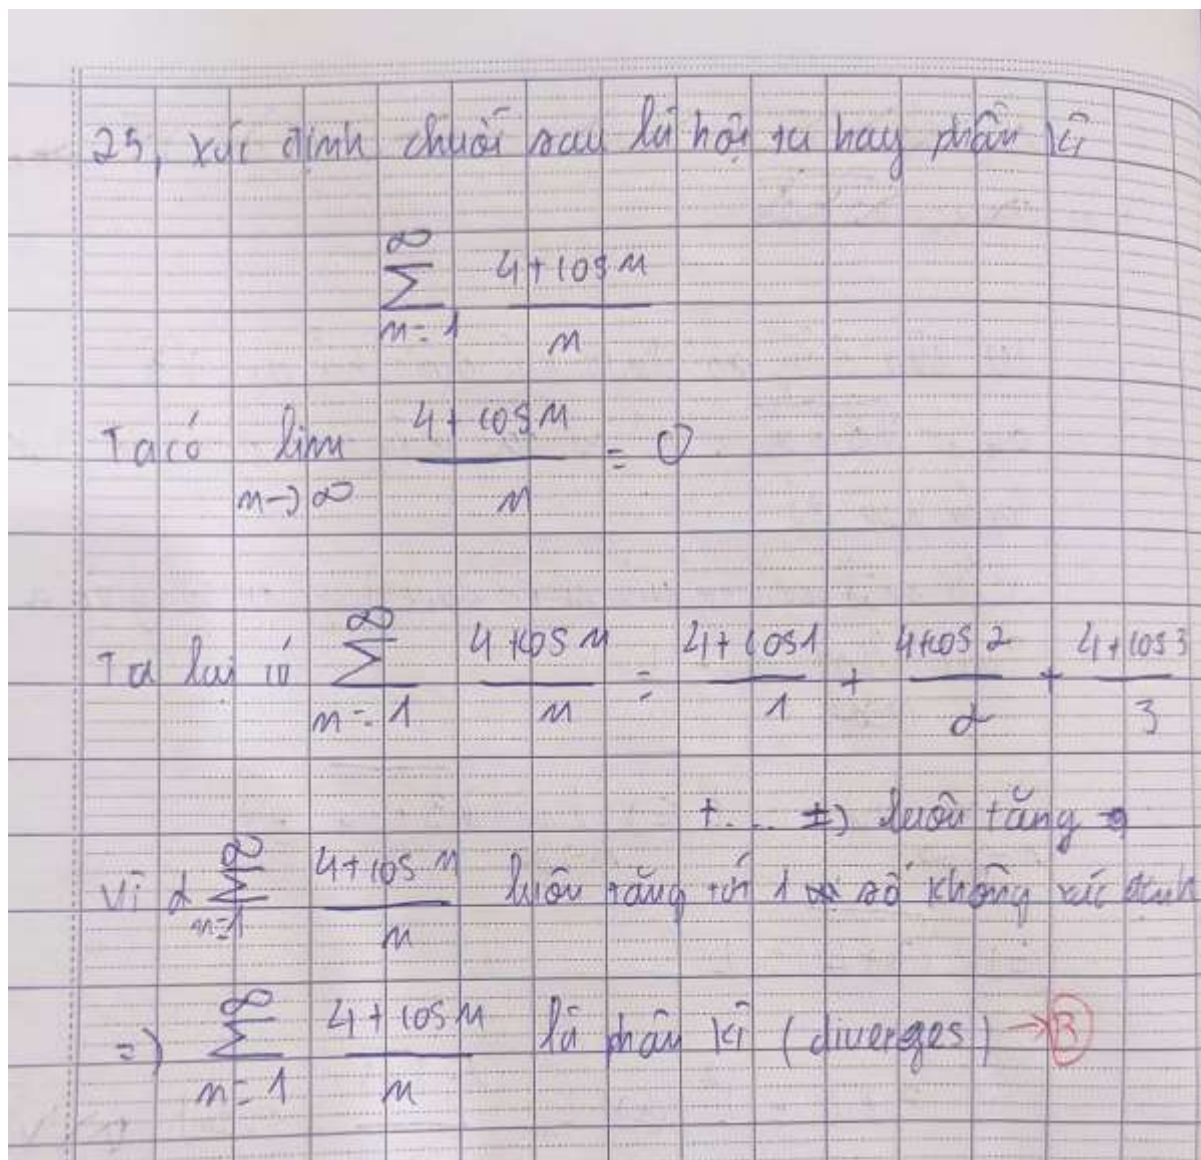 25, xác định chuỗi sau là hội tụ hay phân kì
∞
∑ 4 + cos n / n
n = 1
Ta có lim 4 + cos n / n = 0
n -> ∞
Ta lại có ∞∑n=1 4 + cos n / n = 4 + cos 1 / 1 + 4 + cos 2 / 2 + 4 + cos 3 / 3
+ .... => luôn tăng
Vì ∞∑n=1 4 + cos n / n luôn tăng tới 1 số không xác định
=) ∞∑n=1 4 + cos n / n là phân kì (diverges) → B